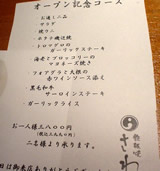 オープン記念コース
お通し二品
サラダ
焼ウニ
ホタテ磯辺焼
トロマグロの
ガーリックステーキ
海老とブロッコリーの
マヨネーズ焼き
フォアグラと大根の
赤ワインソース添え
黒毛和牛
サーロインステーキ
ガーリックライス
お一人様三八〇〇円
二名様より承ります。
鉄板焼
さわ